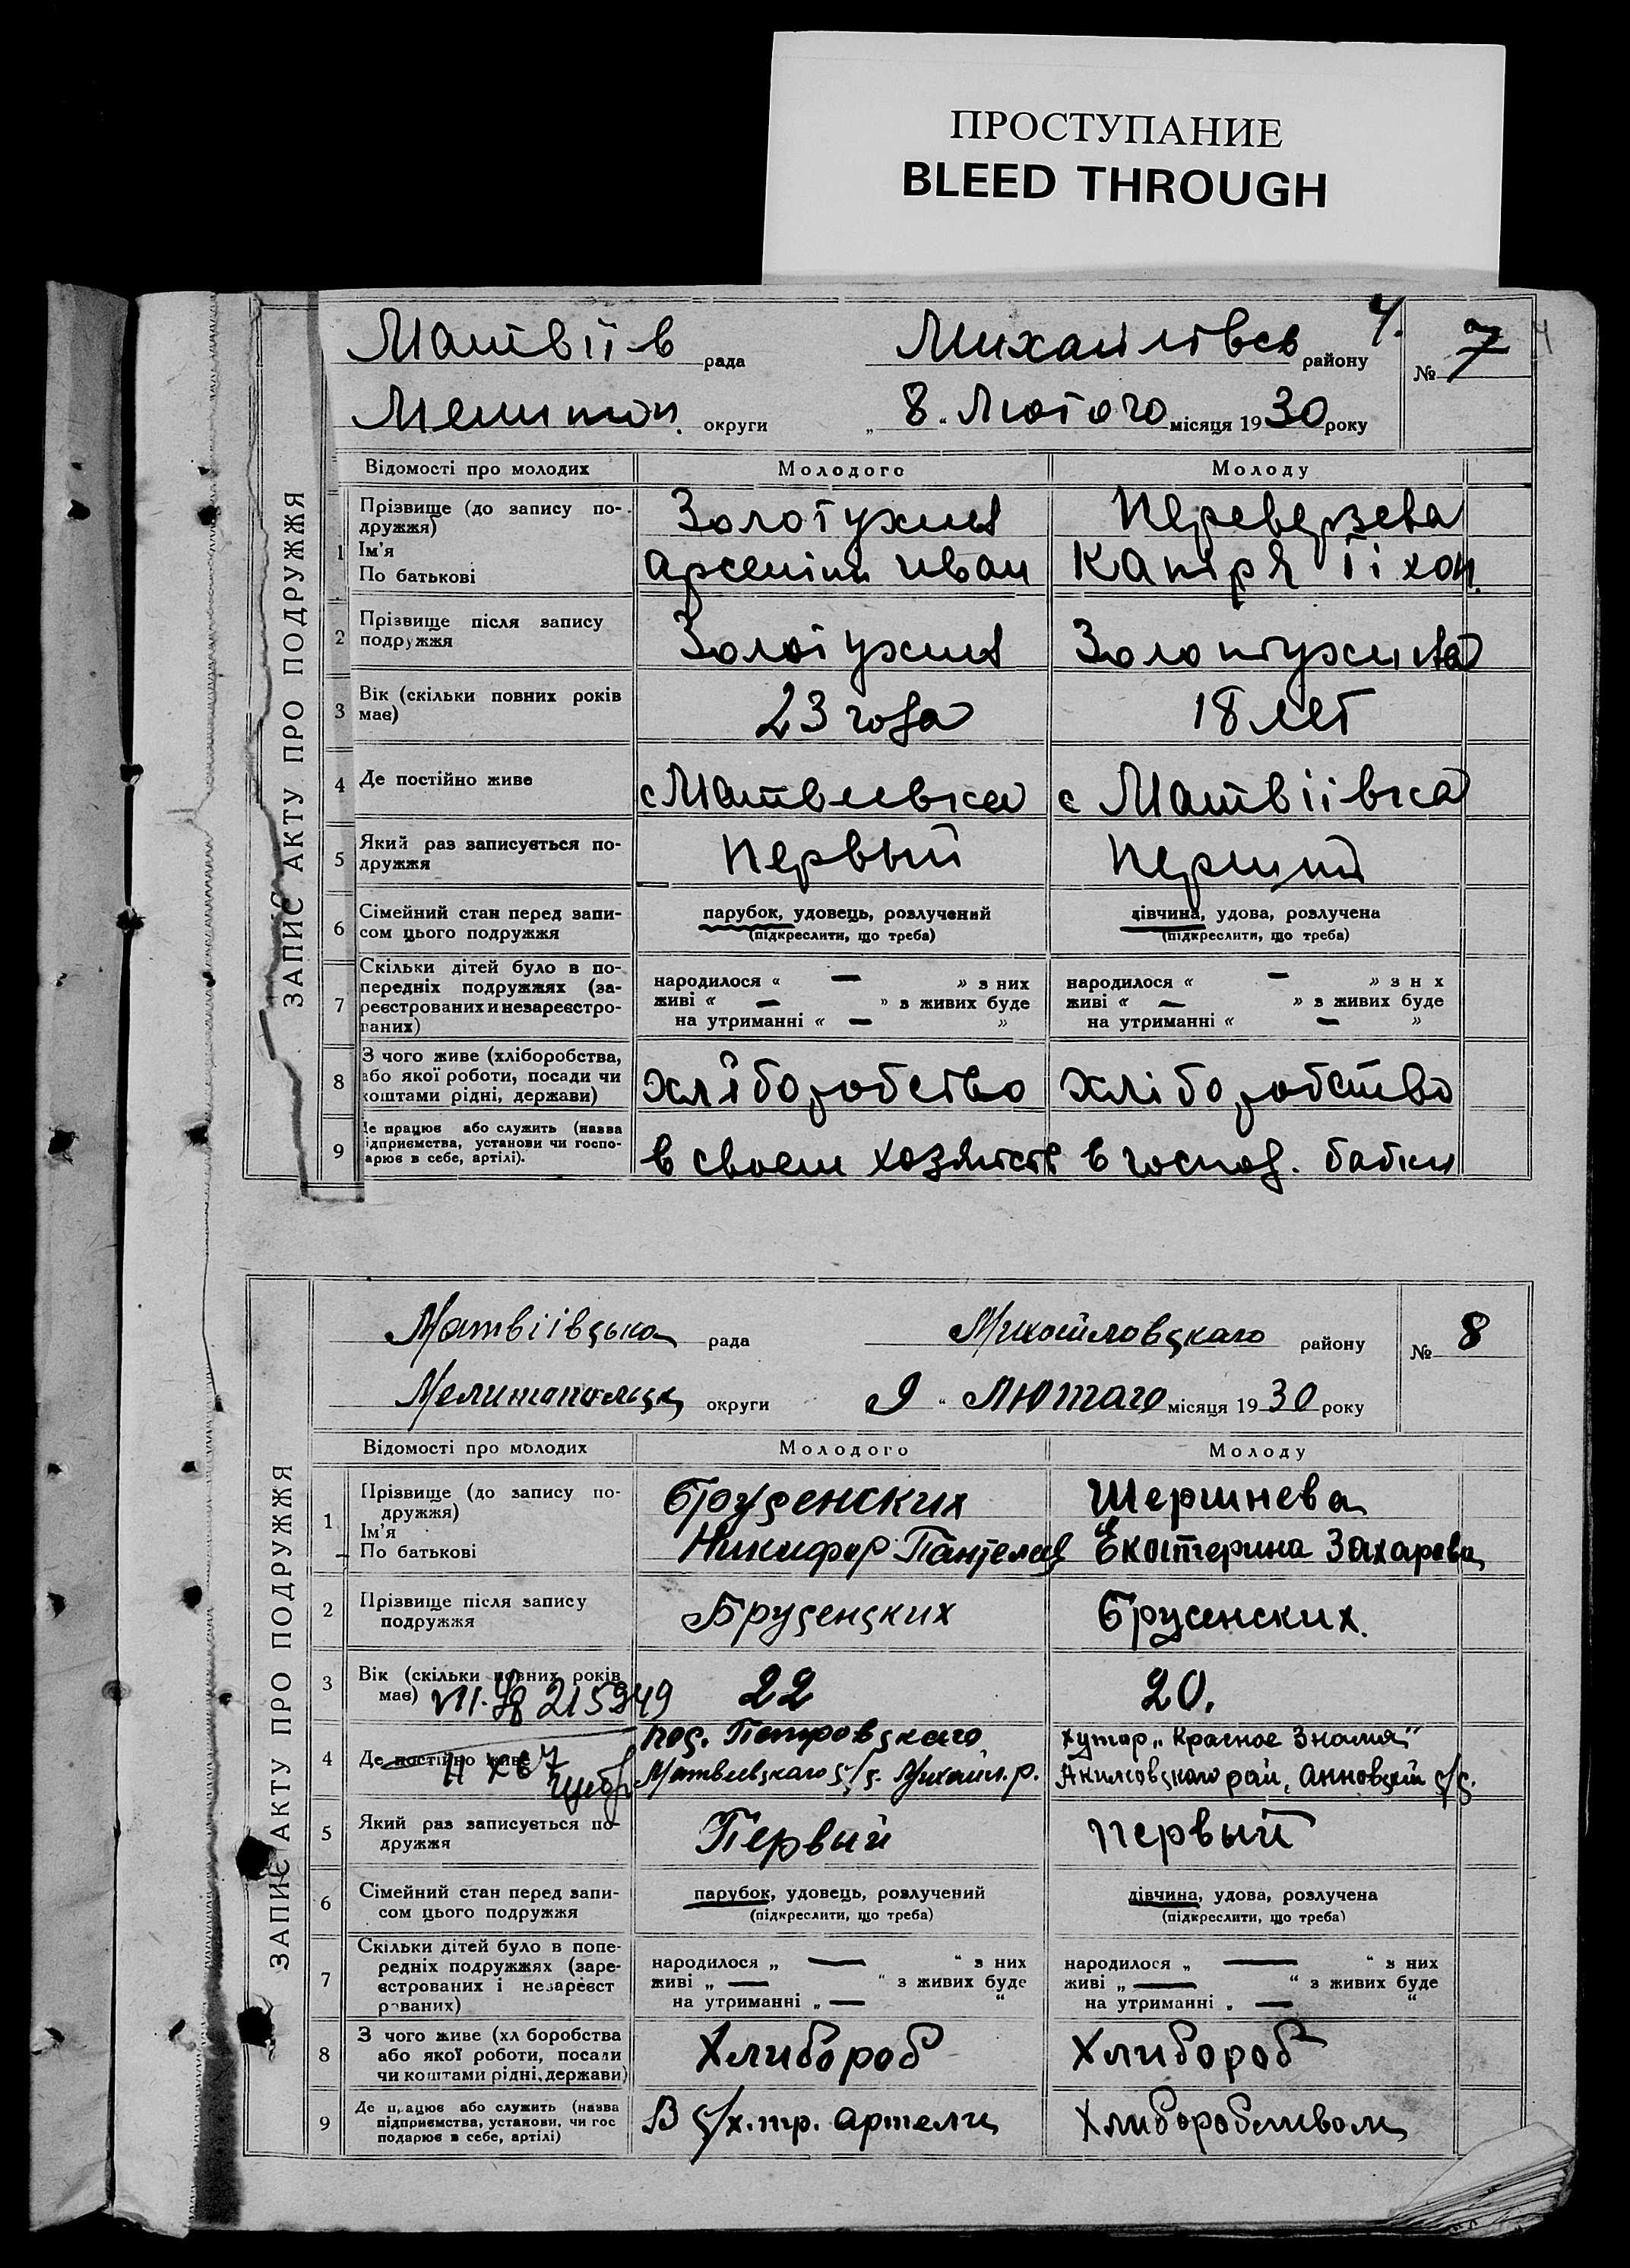 ПРОСТУПАНИЕ
BLEED THROUGH
4.
Матвіїв рада Михайлівсв району № 7
Мелитоп. округи „ 8 „ Лютого місяця 1930 року
ЗАПИС АКТУ ПРО ПОДРУЖЖЯ
Відомості про молодих Молодого Молоду
1 Прізвище (до запису по-
дружжя) Золотухин Переверзева
Ім'я
По батькові Арсентий Иван Катря Тіхон.
2 Прізвище після запису
подружжя Золотухин Золотухина
3 Вік (скільки повних років
має) 23 года 18 лет
4 Де постійно живе с Матвеевка с Матвіївка
5 Який раз записується по-
дружжя Первый Перший
6 Сімейний стан перед запи-
сом цього подружжя
парубок, удовець, розлучений дівчина, удова, розлучена
(підкреслити, що треба) (підкреслити, що треба)
7 Скільки дітей було в по-
передніх подружжях (за-
реєстрованих и незареєстро-
ваних)
народилося « — » з них народилося « — » з н х
живі « — » з живих буде живі « — » з живих буде
на утриманні « — » на утриманні « — »
8 З чого живе (хліборобства,
або якої роботи, посади чи
коштами рідні, держави)
хліборобство хліборобство
9 Де працює або служить (назва
підприємства, установи чи госпо-
дарює в себе, артілі).
в своем хозяйств в господ. батьки
Матвіівська рада Михайловскаго району № 8
Мелитопольск округи 9 „ Лютаго місяця 1930 року
ЗАПИС АКТУ ПРО ПОДРУЖЖЯ
Відомості про молодих Молодого Молоду
1 Прізвище (до запису по-
дружжя) Брусенских Шершнева
Ім'я
По батькові Никифор Пантелеев Екатерина Захарова
2 Прізвище після запису
подружжя Брусенских Брусенских.
3 Вік (скільки повних років
має) 22 20.
215949
4 Де постійно живе
пос. Петровскаго хутор „Красное Знамя"
Матвеевскаго с/с. Михайл. р. Акимовскаго рай, Анновский с/с.
5 Який раз записується по-
дружжя Первый первый
6 Сімейний стан перед запи-
сом цього подружжя
парубок, удовець, розлучений дівчина, удова, розлучена
(підкреслити, що треба) (підкреслити, що треба)
7 Скільки дітей було в попе-
редніх подружжях (заре-
єстрованих і незареєст
рованих)
народилося „ — “ з них народилося „ — “ з них
живі „ — “ з живих буде живі „ — “ з живих буде
на утриманні „ — “ на утриманні „ — “
8 З чого живе (хл боробства
або якої роботи, посади
чи коштами рідні, держави)
Хлибороб Хлибороб
9 Де працює або служить (назва
підприємства, установи, чи гос
подарює в себе, артілі)
В с/х. тр. артели Хлиборобством